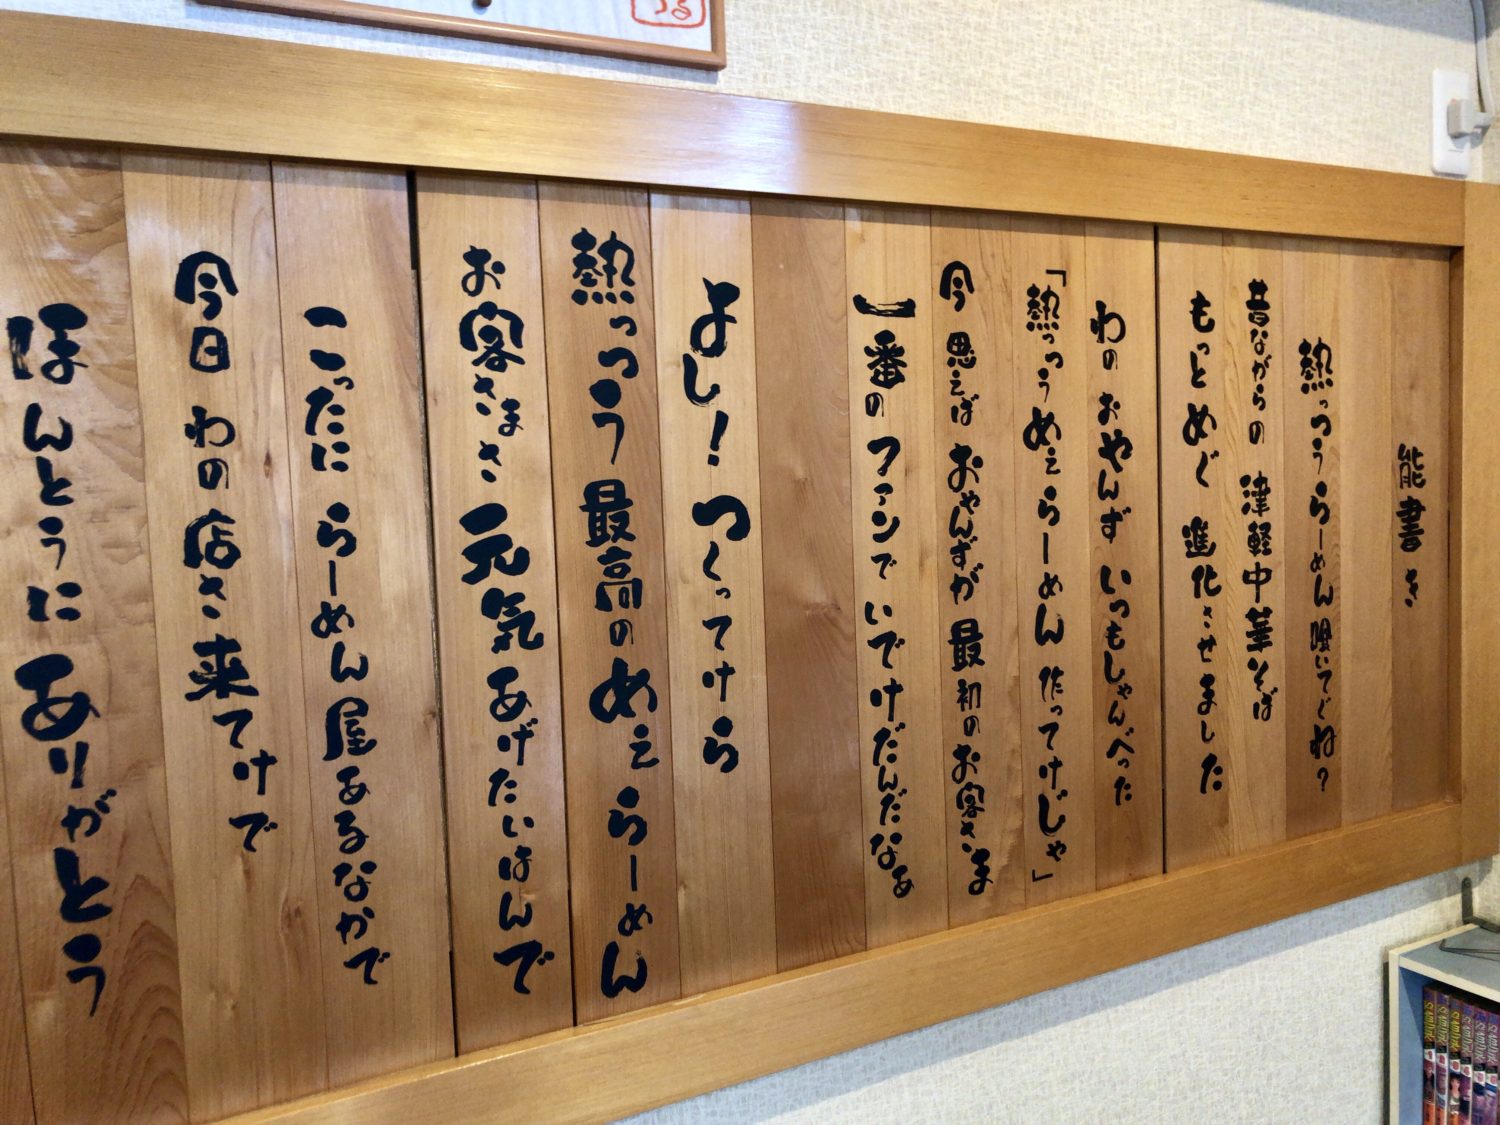 能書き
熱っつうらーめん喰いてぐね?
昔ながらの 津軽中華そば
もっとめぐ 進化させました
わの おやんず いつもしゃんべった
「熱っつぅ めぇらーめん 作ってけじゃ」
今 思えば おやんずが 最初のお客さま
一番の ファンで いでけだんだなぁ
よし! つくってけら
熱っつう 最高の めぇ らーめん
お客さまさ 元気 あげたいはんで
こったに らーめん屋 あるなかで
今日 わの 店さ 来てけで
ほんとうに ありがとう
SLAM DUNK
SLAM DUNK
SLAM DUNK
SLAM DUNK
SLAM DUNK
SLAM DUNK